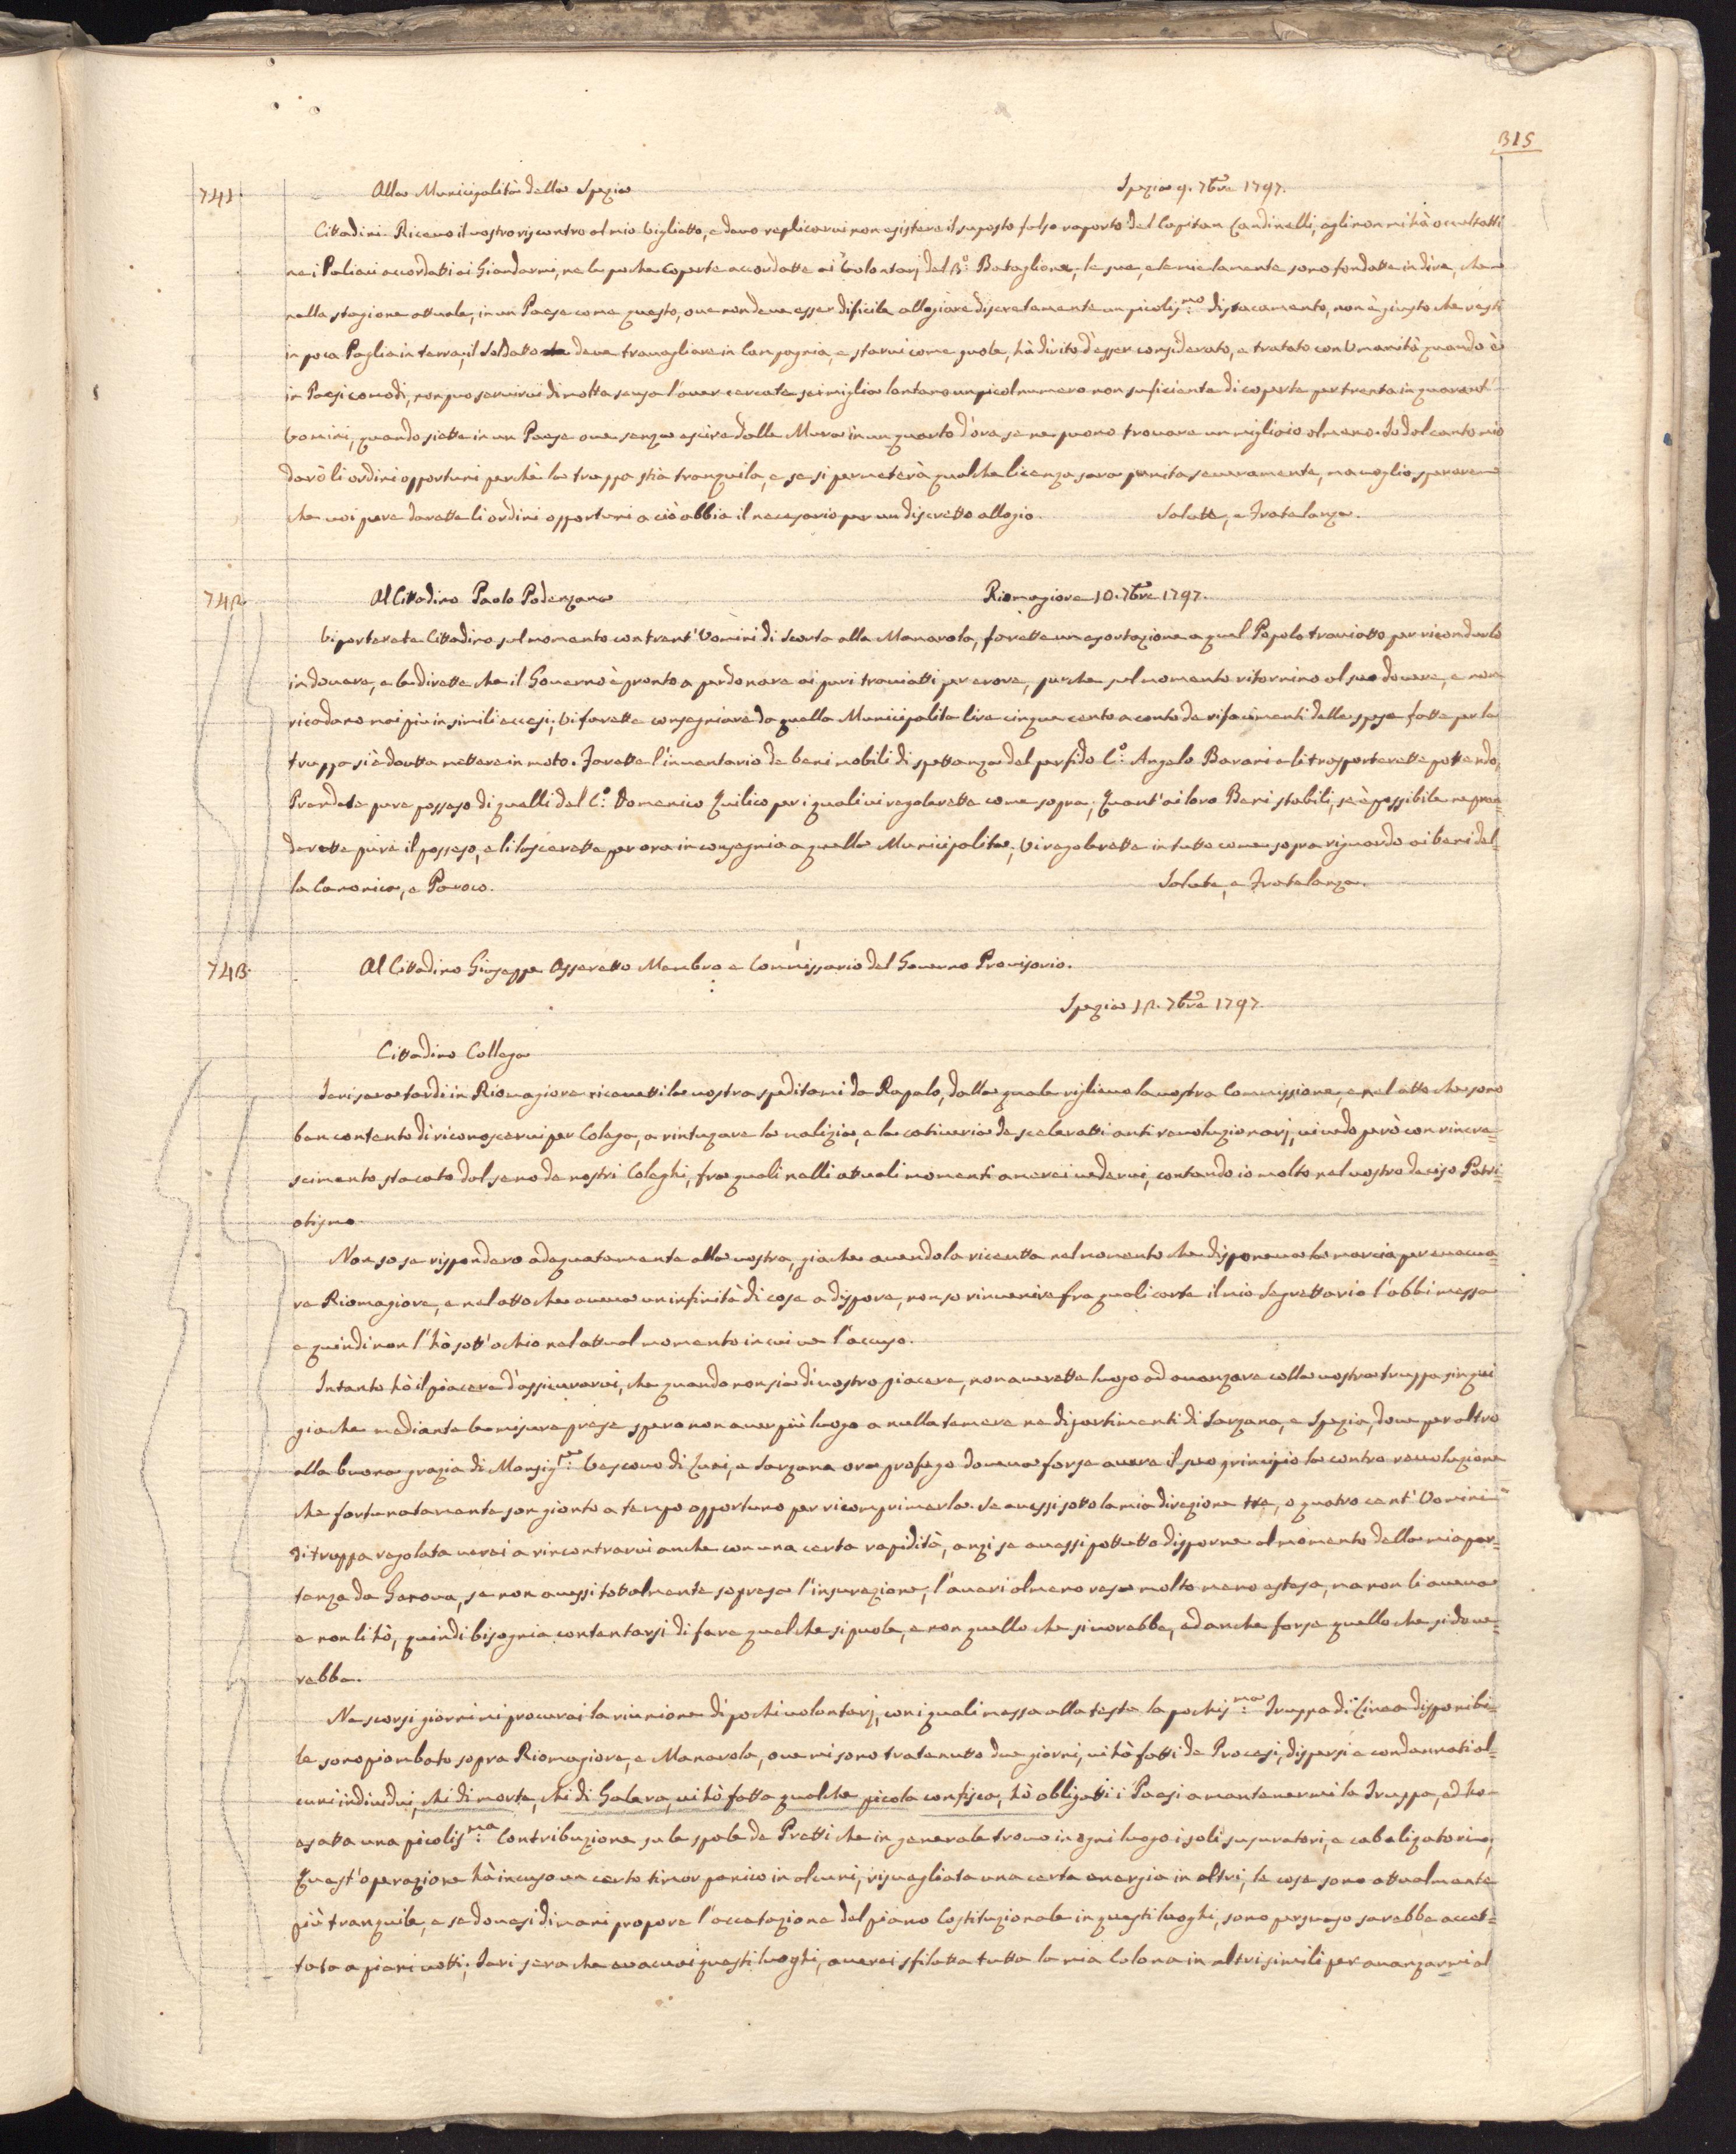 315
741. Alla Municipalità della Spezia Spezia 9. 7bre 1797.
Cittadini Ricevo il vostro riscontro al mio viglietto, e devo replicarvi non esistere il suposto falso raporto del Capitan Cardinelli, egli non mi hà occultatti
ne i Paliaci accordatti ai Giandarmi, ne le poche Coperte accordatte ai Volontarj del 3º: Bataglione, le sue, e le mie lamente sono fondatte in dire, che
nella stagione attuale, in un Paese come questo, ove non deve esser dificile allogiare discretamente un picolis:mo distacamento, non è giusto che resti
in poca Paglia in terra, il Soldatto deve travagliare in Campagnia, e starvi come puole, hà dirito d'esser considerato, e tratato con Umanità quando è
in Paesi comodi, non può servirvi di molta scusa l'aver cercate sei miglia lontano un picol numero non suficiente di coperte per trenta in quarant'
Uomini, quando siette in un Paese ove senza escire dalle Mura in un quarto d'ora se ne puono trovare un migliaio almeno. Io dal canto mio
darò li ordini opportuni perchè la truppa stia tranquila, e se si permeterà qualche licenza sara punita severamente, ma voglio sperare
che voi pure darette li ordini opportuni a ciò abbia il necesario per un discretto allogio. Salutte, e Fratelanza.
742. Al Cittadino Paolo Podenzana Riomagiore 10. 7bre 1797.
Vi porterete Cittadino sul momento con trent' Uomini di Scorta alla Manarola, farette un esortazione a quel Popolo traviatto per ricondurlo
in dovere, e le dirette che il Governo è pronto a perdonare ai puri traviatti per erore, purche sul momento ritornino al suo dovere, e non
ricadano mai più in simili eccesi; Vi farette consegniare da quella Municipalita lire cinque cento a conto de rifacimenti delle spese fatte per la
truppa si è doutta mettere in moto. Farette l'inventario de beni mobili di spettanza del perfido C:º Angelo Barani e li trasporterette pottendo,
Prendete pure possesso di quelli del C:º Domenico Quilico per i quali vi regolerette come sopra; Quant' ai loro Beni stabili, se è possibile ne pren=
derette pure il possesso, e li lascerette per ora in consegnia a quella Municipalita; Vi regolerette in tutto come sopra riguardo ai beni del=
la Canonica, e Paroco. Salute, e Fratelanza.
743. Al Cittadino Giuseppe Assaretto Membro e Commissario del Governo Provisorio.
Spezia 12. 7bre 1797.
Cittadino Collega
Ieri sera tardi in Riomagiore ricevetti la vostra speditami da Rapalo, dalla quale riglievo la vostra Commissione, e nel atto che sono
ben contento di riconoscervi per Colega, a rintuzare la malizia, e la cativeria de sceleratti anti revoluzionarj, vi vedo però con rincre=
scimento stacato dal seno de nostri Coleghi, fra quali nelli attuali momenti amerei vedervi, contando io molto nel vostro deciso Patri=
otismo
Non so se risponderò adeguatamente alla vostra, giache avendola riceutta nel momento che disponeva la marcia per evacua=
re Riomagiore, e nel atto che aveva un infinità di cose a dispore, non so rinvenire fra quali carte il mio Segrettario l'abbi messa
e quindi non l'hò sott' ochio nel attual momento in cui ve l'accuso.
Intanto hò il piacere d'assicurarvi, che quando non sia di vostro piacere, non averette luogo ad avanzare colla vostra truppa sin qui
giache mediante le misure prese spero non aver più luogo a nulla temere ne dipartimenti di Sarzana, e Spezia, dove per altro
alla buona grazia di Monsig:re Vescovo di Luni, e Sarzana ora profugo doveva forse avere il suo principio la contro revoluzione
che fortunatamente son gionto a tempo opportuno per ricomprimerla. Se avessi sotto la mia direzione tre, o quatro cent' Uomini
di truppa regolata verei a rincontrarvi anche con una certa rapidità, anzi se avessi pottutto disporne al momento della mia par=
tenza da Genova, se non avessi tottalmente sopresa l'insurezione, l'averi almeno resa molto meno estesa, ma non li aveva
e non li hò, quindi bisognia contentarsi di fare quel che si puole, e non quello che si vorebbe, ed anche forse quello che si dove=
rebbe.
Ne scorsi giorni mi procurai la riunione di pochi volontarj, con i quali messa alla testa la pochis:ma Truppa di Linea disponibi=
le sono piombato sopra Riomagiore, e Manarola, ove mi sono tratenutto due giorni, vi hò fatti de Procesi, dispersi e condannati al=
cuni individui, chi di morte, chi di Galera, vi hò fatta qualche picola confisca, hò obligatti i Paesi a mantenermi la Truppa, ed ho
esatta una picolis:ma Contribuzione su le spale de Pretti che in generale trovo in ogni luogo i soli susuratori, e cabalizatori,
Quest' operazione hà incuso un certo timor panico in alcuni, risvegliata una certa energia in altri, le cose sono attualmente
più tranquile, e se dovesi dimani propore l'accetazione del piano Costituzionale in questi luoghi, sono persuaso sarebbe accet=
tata a pieni votti; Ieri sera che evacuai questi luoghi, averei sfilatta tutta la mia Colona in altri simili per avanzarmi al